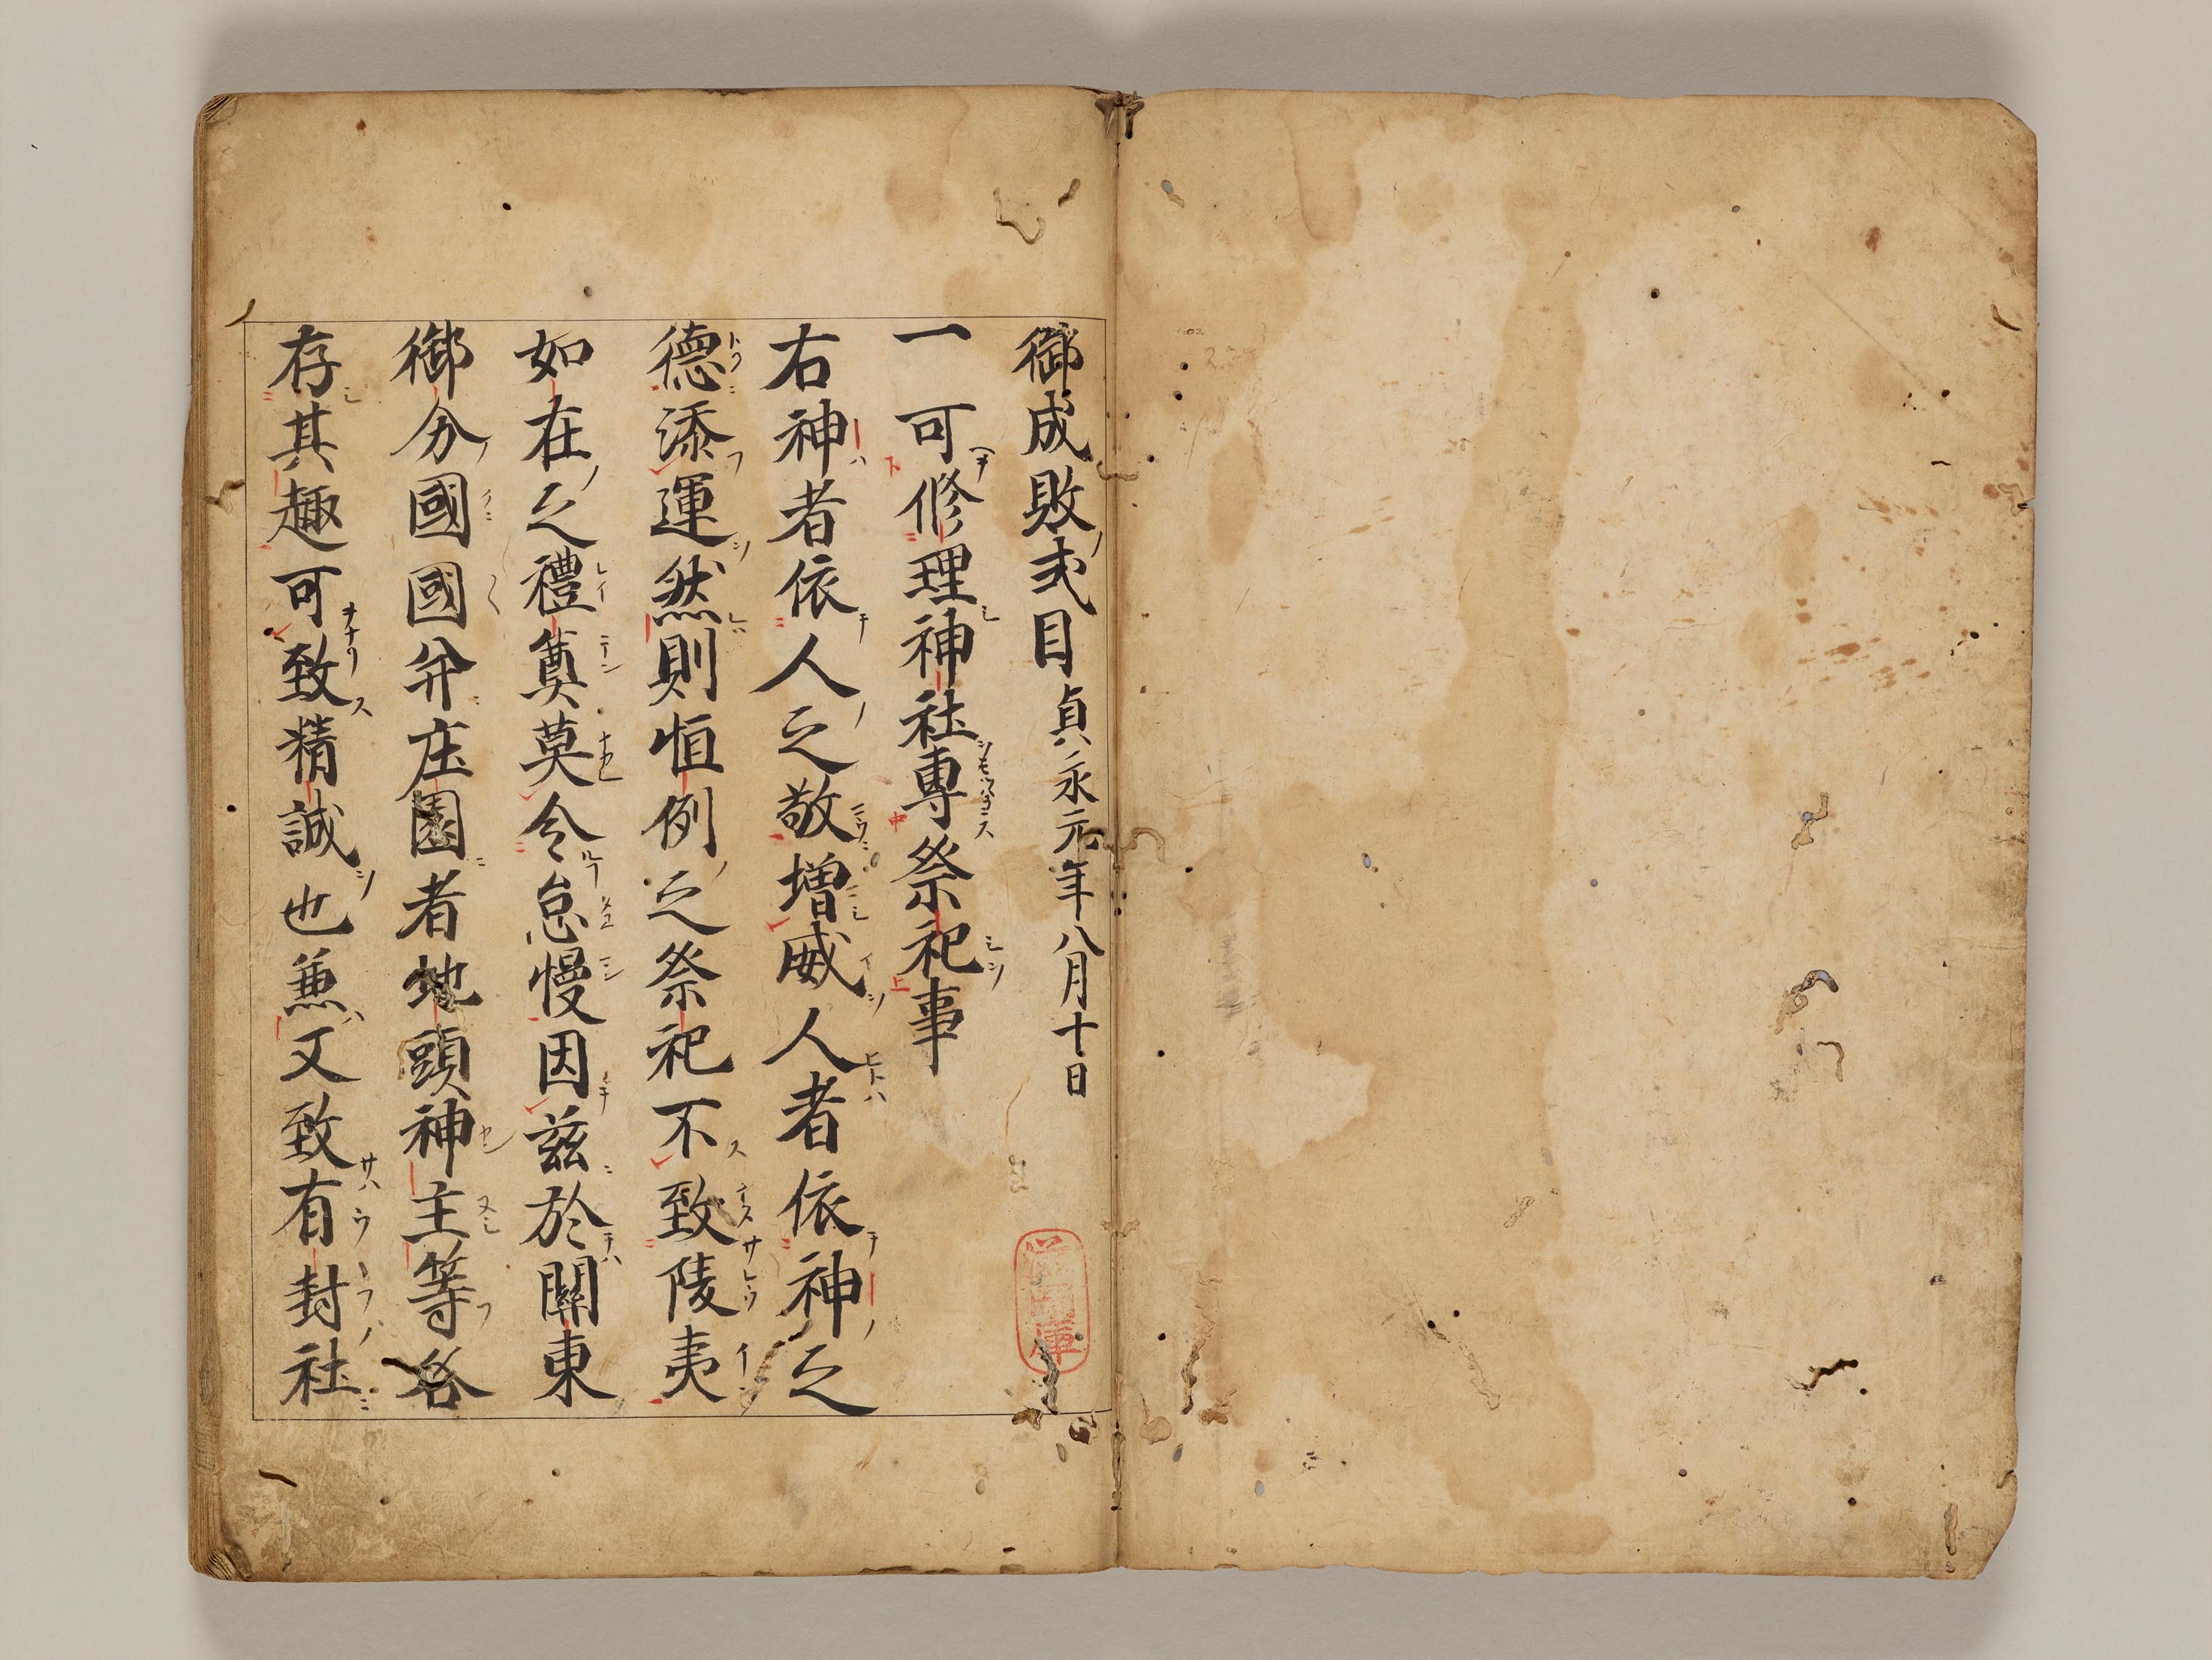 御成敗式目貞永元年八月十日
一可修理神社專祭祀事
右神者依人之敬増威人者依神之
德添運然則恒例之祭祀不致陵夷
如在之禮奠莫令怠慢因茲於關東
御分國國并庄園者地頭神主等各
存其趣可致精誠也兼又致有封社